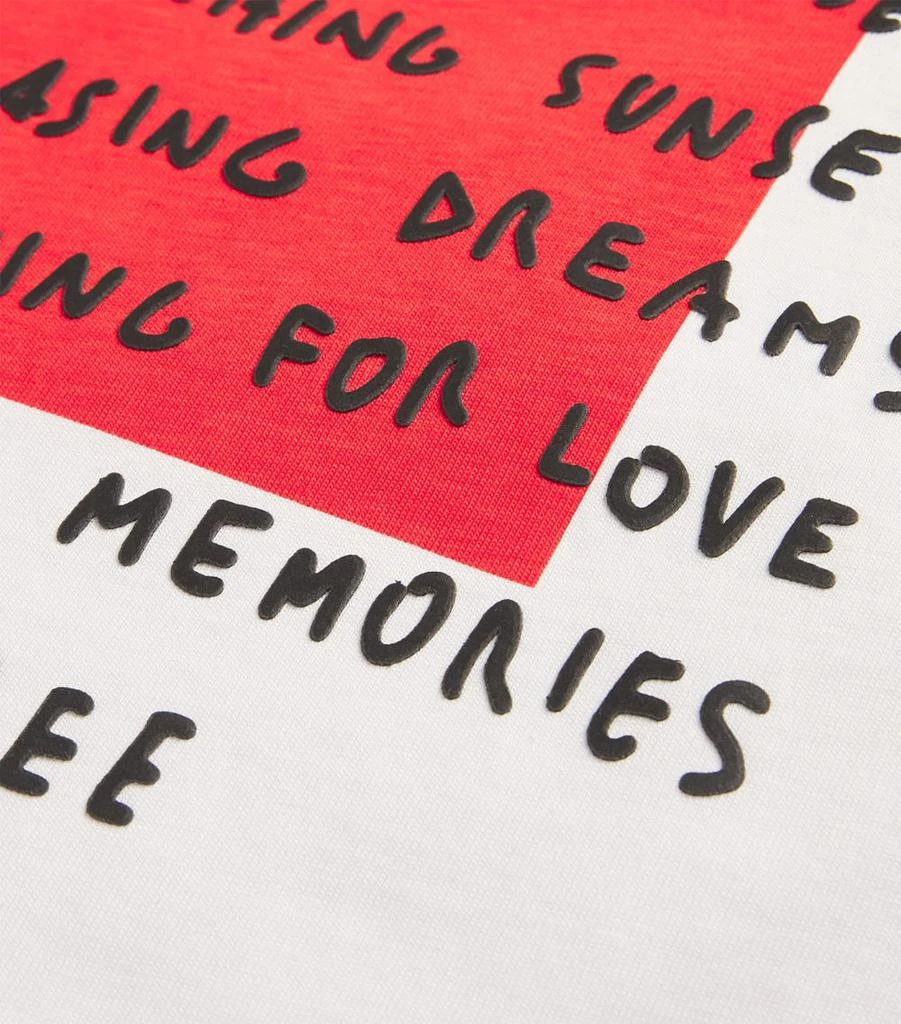 HING SUNSE
ASING DREAMS
ING FOR LOVE
MEMORIES
EE